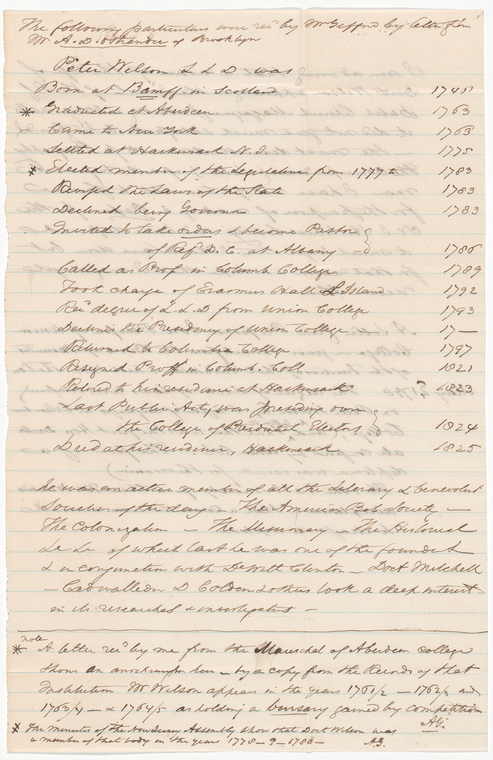 The following particulars were rec'd by Mr Gifford by letter from
Mr A. D. Ostrander of Brooklyn
Peter Wilson L L D was
Born at Bamff in Scotland 1746
* Graduated at Aberdeen 1763
Came to New York 1763
Settled at Hackensack N. J. 1775
* Elected member of the Legislature from 1777 to 1783
Revised the Laws of the State 1783
Declined being Governor 1783
Invited to take orders & become Pastor
of Ref D. C. at Albany 1786
Called as Prof. in Columb College 1789
Took charge of Erasmus Hall L. Island 1792
Rec'd degree of L L D from Union College 1793
Declined the Presidency of Union College 17—
Returned to Columbia College 1797
Resigned Proff in Columb. Coll 1821
Retired to his residence at Hackensack ? 1823
Last Public Act, was presiding over
the College of Presidential Electors 1824
Died at his residence, Hackensack 1825
He was an active member of all the Literary & benevolent
Societies of the day — The American Bib. Society —
The Colonization — The Missionary — The Historical
&c &c of which last he was one of the founders
& in conjunction with DeWitt Clinton — Doct Mitchell
— Cadwallader D Colden & others took a deep interest
in its researches & investigations —
note
* A letter rec'd by me from the Mareschal of Aberdeen college
shows an anachronism here — by a copy from the Records of that
Institution Mr Wilson appears in the years 1761/2 — 1762/3 and
1763/4 — & 1764/5 as holding a bursary gained by competition
A.G.
* The minutes of the New Jersey Assembly show that Doct Wilson was
a member of that body in the years 1778 – 9 – 1780 — A.G.